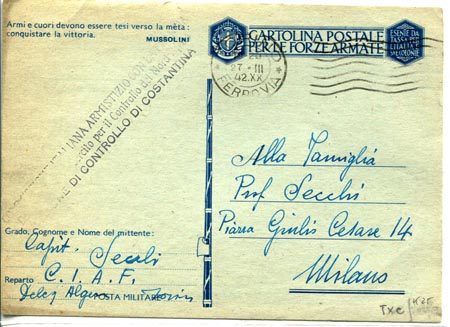 Armi e cuori devono essere tesi verso la mèta:
conquistare la vittoria.
MUSSOLINI
CARTOLINA POSTALE
PER LE FORZE ARMATE
ESENTE DA
TASSA PER
L'ITALIA
COLONIE
27-III
42.XX
FERROVIA
ARMISTIZIO
per il Controllo del
DI CONTROLLO DI COSTANTINA
Alla Famiglia
Prof. Secchi
Piazza Giulio Cesare 14
Milano
Grado, Cognome e Nome del mittente:
Capit. Secchi
Reparto C. I. A. F.
POSTA MILITARE
Txc